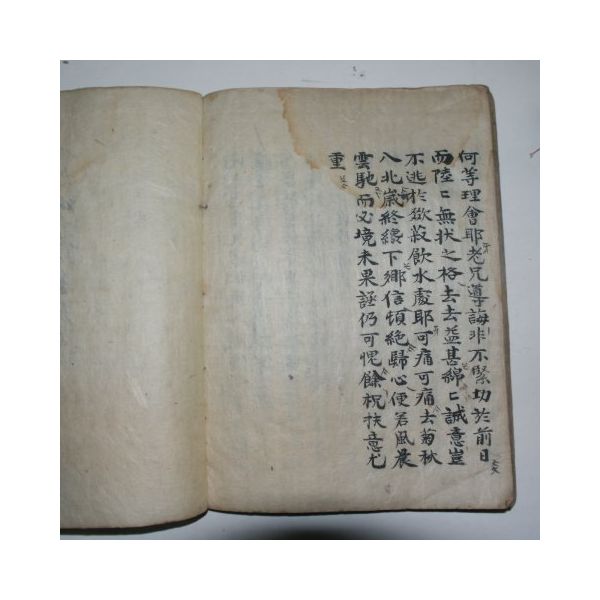 何等理會耶老兄導誨非不緊切於前日
而陸〻無狀之格去去益甚綿〻誠意豈
不逃於欲蔱飮水處耶可痛可痛去菊秋
入北歲終縁下鄕信頓絶歸心便若風晨
雲馳而必境未果誕仍可愧餘祝扶意尤
重